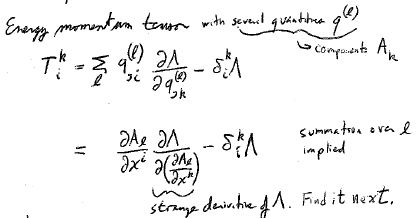 Energy momentum tensor with several quantities q^(l)
↳ components A_k
T_i^k = Σ_l q_{,i}^{(l)} ∂Λ/∂q_{,k}^{(l)} − δ_i^k Λ
= ∂A_l/∂x^i ∂Λ/∂(∂A_l/∂x^k) − δ_i^k Λ summation over l implied
strange derivative of Λ. Find it next.